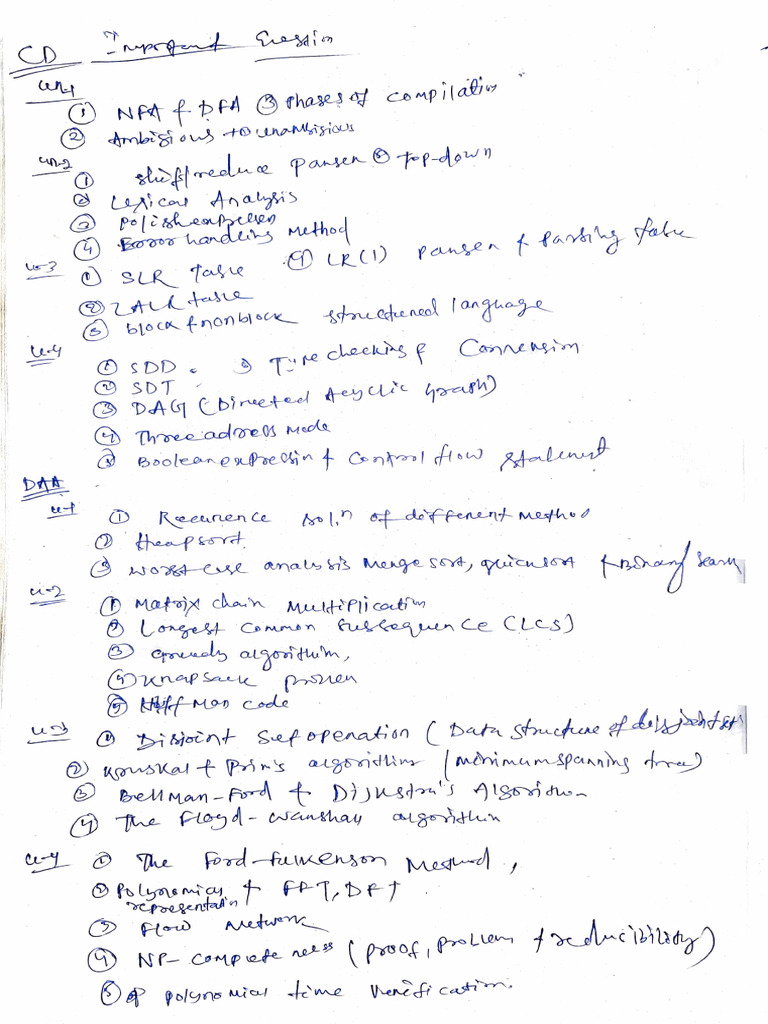 CD Important Question
Un-1
① NFA & DFA ③ Phases of compilation
② Ambigious to unambigious
Un-2
① Shift/reduce parser ⑤ top-down
② Lexical Analysis
③ Polish expression
④ Error handling Method
U-3 ① SLR table ④ LR(1) parser & parsing table
② LALR table
③ block & nonblock structured language
U-4
① SDD. ⑥ Type checking & Conversion
② SDT
③ DAG (Directed Acyclic Graph)
④ Three adress Mode
⑤ Boolean expression & Control flow Statement
DAA
U-1
① Recurence sol.n of different method
② Heapsort.
③ worst case analysis Merge sort, quick sort & Binary Search
U-2
① Matrix chain Multiplication
② Longest Common Subsequence (LCS)
③ Greedy algorithim,
④ Knapsack problem
⑤ Huffman code
U-3 ① Disjoint Set operation (Data structure of disjoint set)
② Kruskal & Prim's algorithim (minimum spanning tree)
③ Bellman-Ford & Dijkstra's Algorithm
④ The Floyd-Warshall algorithim
U-4 ① The Ford-Fulkerson Method,
② Polynomial representation & FFT, DFT
③ Flow Network
④ NP-completeness (proof, problem & reducibility)
⑤ polynomical time verification.